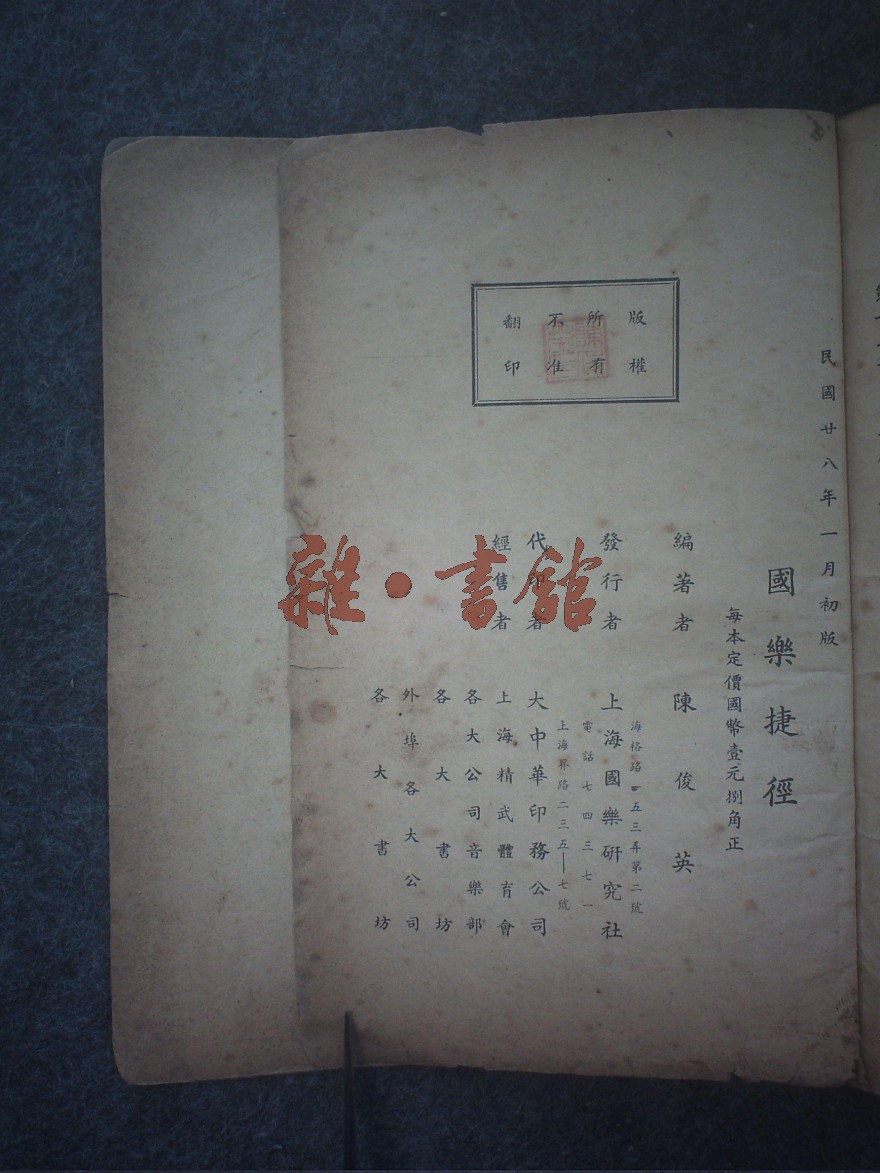 民國廿八年一月初版
國樂捷徑
每本定價國幣壹元捌角正
編著者 陳俊英
海格路四五三弄第二號
發行者 上海國樂研究社
電話七四三七一
上海界路二三五—七號
代印者 大中華印務公司
經售者 上海精武體育會
各大公司音樂部
各大書坊
外埠各大公司
各大書坊
版權
所有
不准
翻印
雜·書館